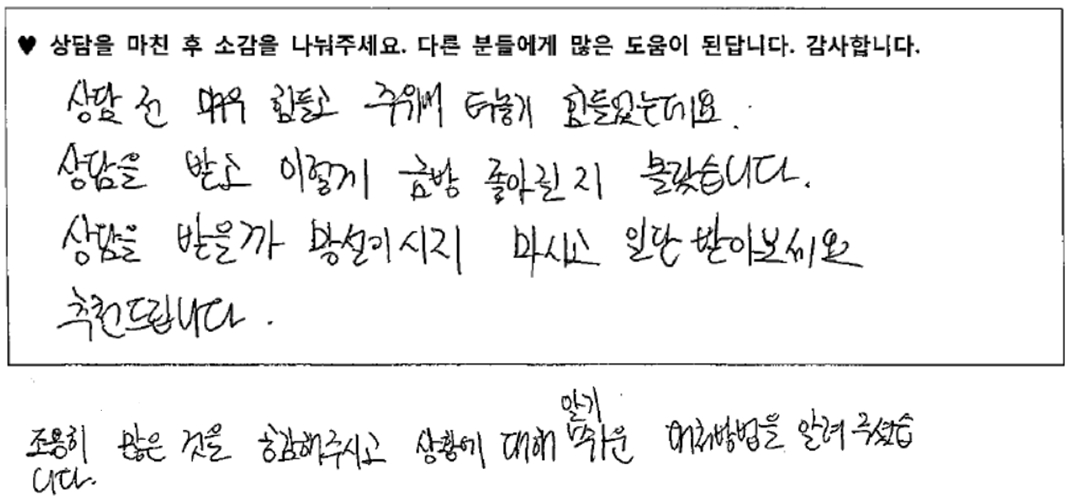 ♥ 상담을 마친 후 소감을 나눠주세요. 다른 분들에게 많은 도움이 된답니다. 감사합니다.
상담 전 매우 힘들고 주위에 터놓기 힘들었는데요.
상담을 받고 이렇게 금방 좋아질지 몰랐습니다.
상담을 받을까 망설이시지 마시고 일단 받아보세요
추천드립니다.
알기
조용히 많은 것을 공감해주시고 상황에 대해 쉬운 대처방법을 알려주셨습
니다.